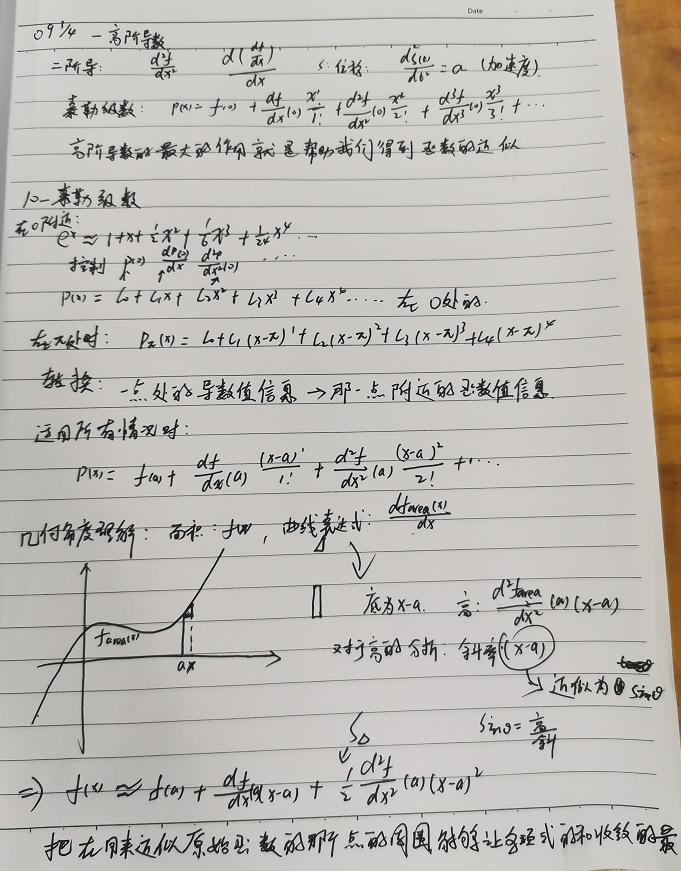 Date
09 3/4 - 高阶导数
二阶导: d²f/dx² d(df/dx)/dx S: 位移: d²S(t)/dt² = a (加速度)
泰勒级数: P(x) = f(0) + df/dx(0) x¹/1! + d²f/dx²(0) x²/2! + d³f/dx³(0) x³/3! + ...
高阶导数的最大的作用就是帮助我们得到函数的近似
10 - 泰勒级数
在0附近:
e^x ≈ 1 + x + 1/2 x² + 1/6 x³ + 1/24 x⁴ ...
控制 P(0) dP(0)/dx d²P/dx²(0) ....
P(x) = C₀ + C₁x + C₂x² + C₃x³ + C₄x⁴ ..... 在0处的.
在π处时: P_π(x) = C₀ + C₁(x-π)¹ + C₂(x-π)² + C₃(x-π)³ + C₄(x-π)⁴
转换: 一点处的导数值信息 → 那一点附近的函数值信息
适用所有情况时:
P(x) = f(a) + df/dx(a) (x-a)¹/1! + d²f/dx²(a) (x-a)²/2! + ...
几何角度理解: 面积: f(x), 曲线表达式: dfarea(x)/dx
底为x-a. 高: d²farea/dx²(a)(x-a)
farea(x)
a x
对于高的分析: 斜率·(x-a)
近似为 sinθ
sinθ = 高/斜
S△
=> f(x) ≈ f(a) + df/dx(a)(x-a) + 1/2 d²f/dx²(a)(x-a)²
把在用来近似原始函数的那个点的周围能够让多项式的和收敛的最